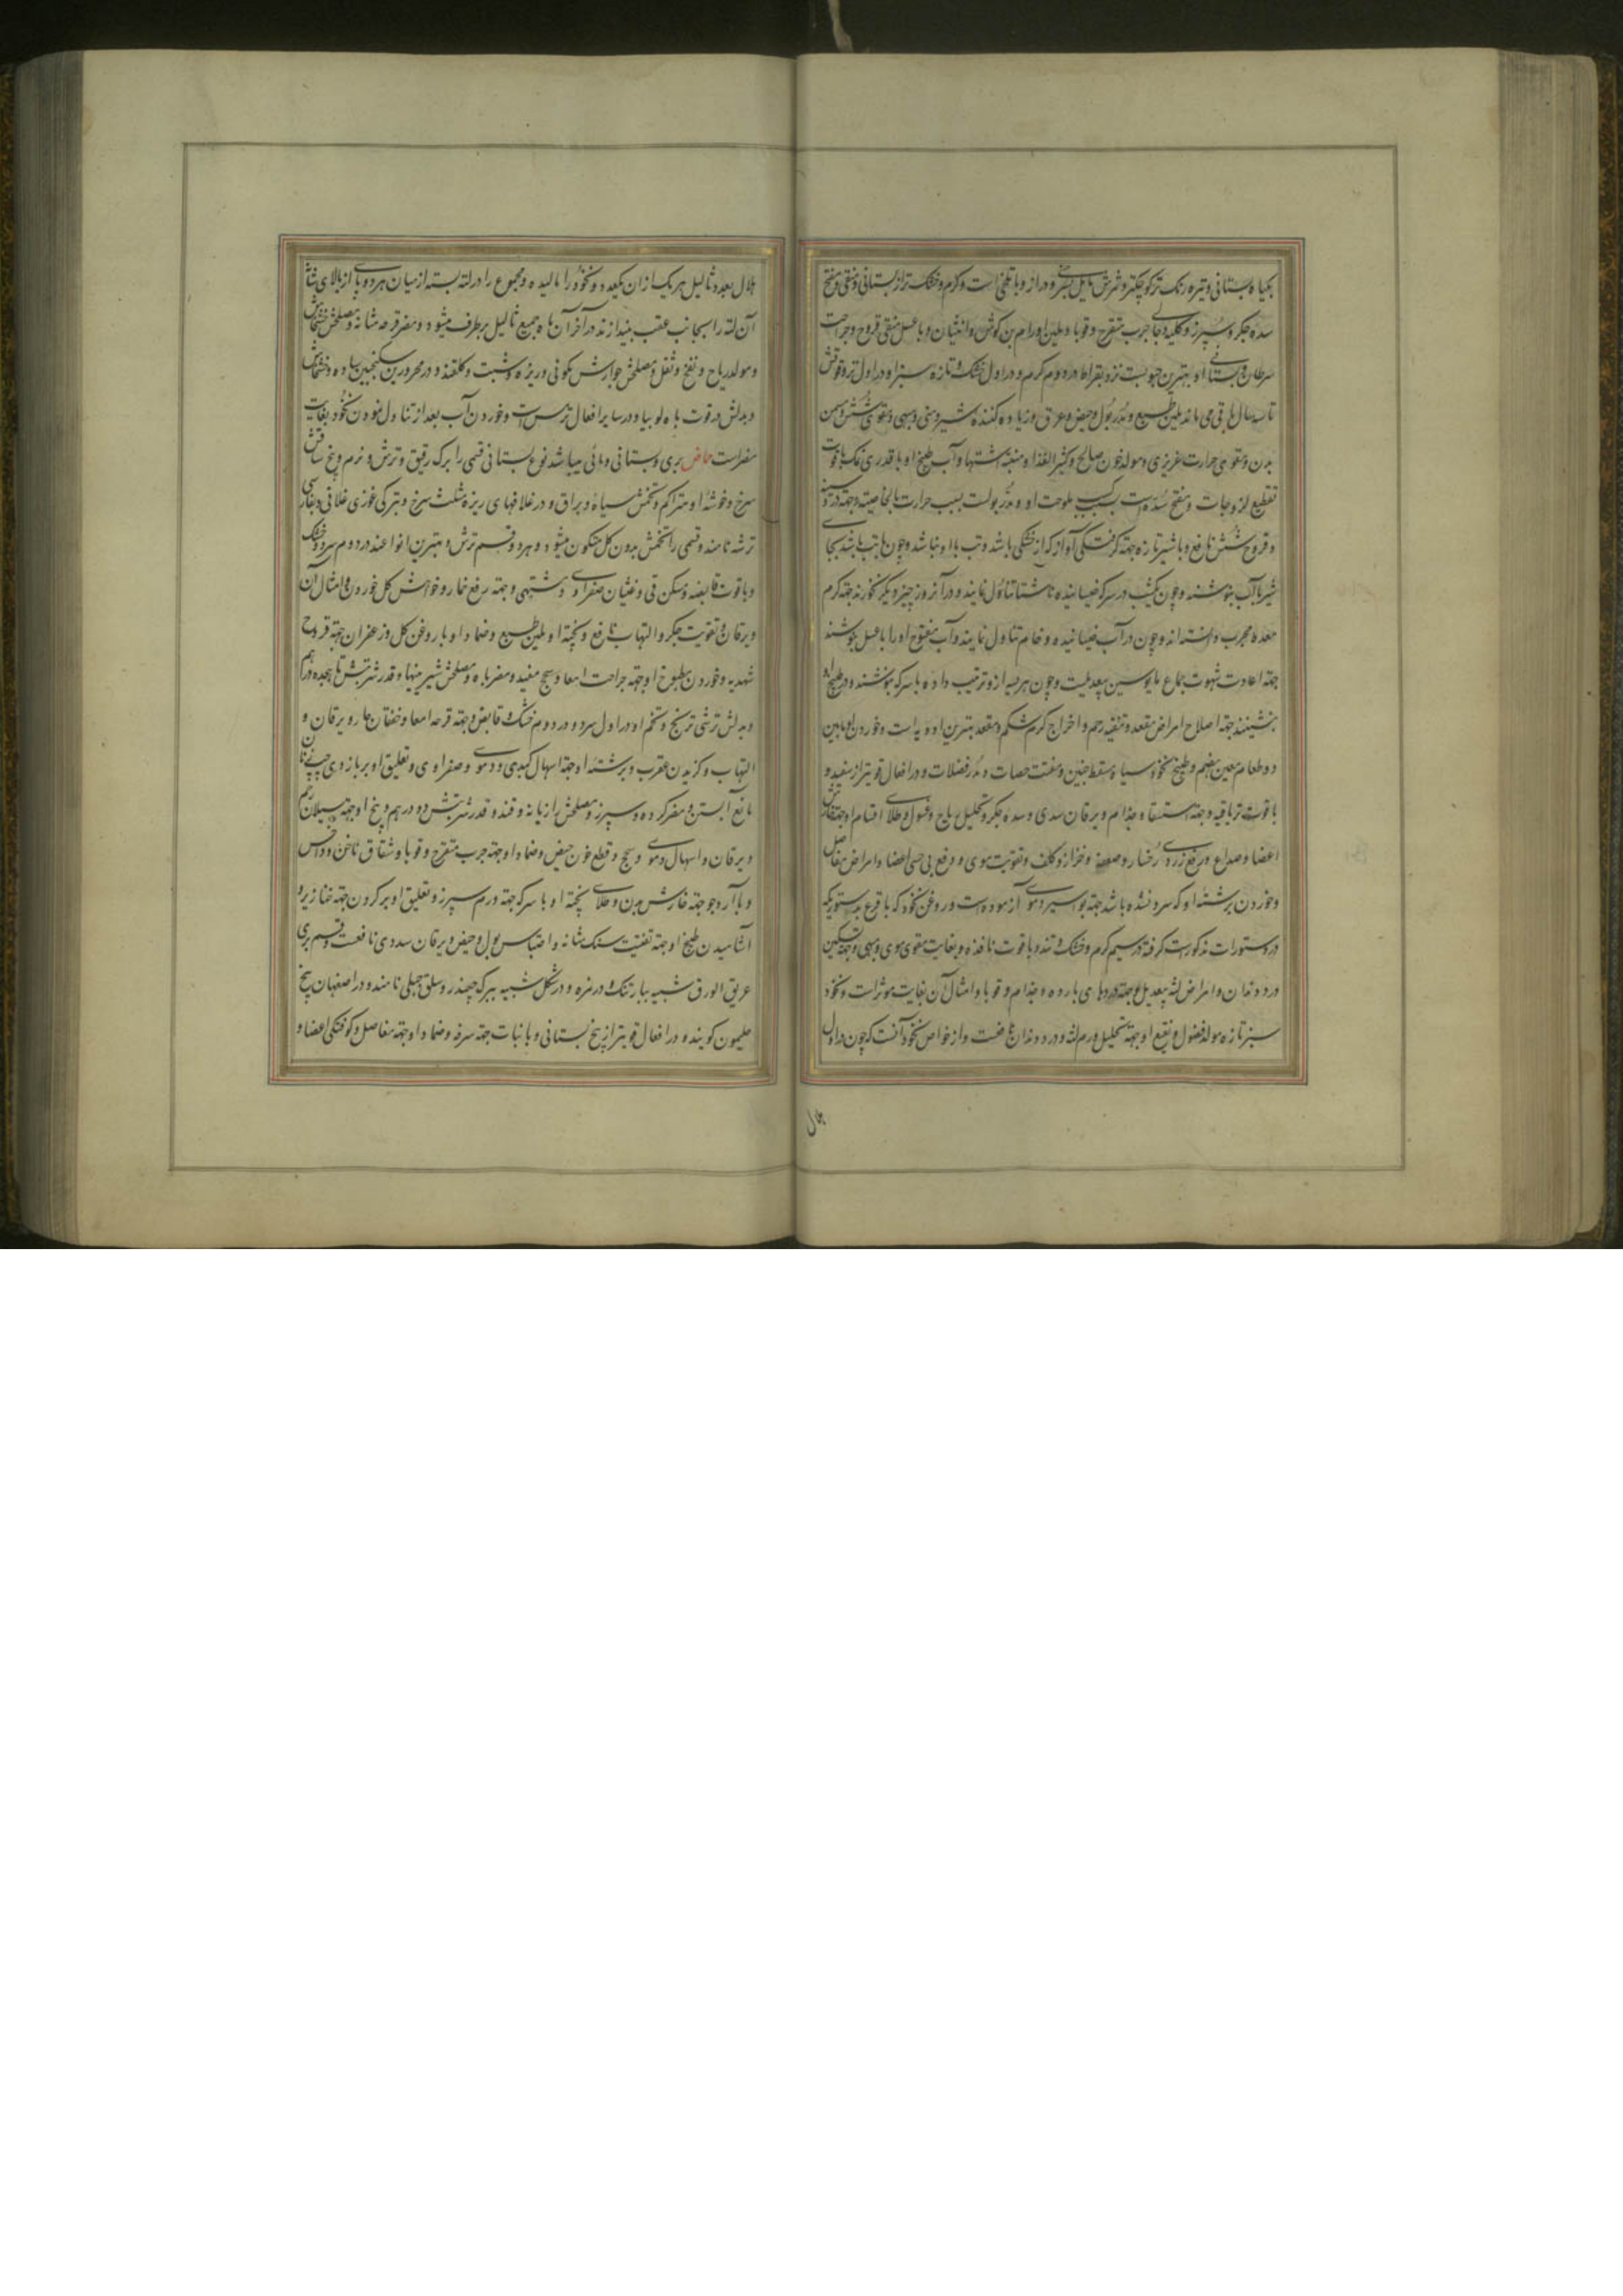 بکیاه بستانی و تیره رنک تر و کوچکتر و ثمرش مایل بتدویر و دراز و با تلخی است و کرم و خشک تر از بستانی و منقی و مفتح
سده جکر و سپرز و کلیه و جهة جرب متقرح و قوبا و ملین اورام بن کوش و انثیان و با عسل منقی قروح و جراحت
سرطان و بستانی او بهترین حبوبست نزد بقراط در دوم کرم و در اول خشک و تازه سبز او در اول تر و قوتش
تا سه سال باقی می ماند ملین طبع و مدر بول و حیض و عرق و زیاده کننده شیر و منی و مبهی و مقوی شش و مسمن
بدن و مقوی حرارت غریزی و مولد خون صالح و کثیر الغذا و منبه اشتها و آب طبیخ او با قدری نمک با قوت
تقطیع لزوجات و مفتح سده است بسبب ملوحت او و مدر بولست بسبب حرارت بالخاصیه و جهة درد سینه
و قروح شش نافع و با شیر تازه جهة کرفتکی آواز که از خشکی باشد و تب با او نباشد و چون با تب باشد بجای
شیر با آب بنوشند و چون یکشب در سرکه خیسانیده ناشتا تناول نمایند و در آنروز چیز دیکر نخورند جهة کرم
معده مجرب دانسته اند و چون در آب خیسانیده و خام تناول نمایند و آب منقوع او را با عسل بنوشند
جهة اعادت شهوت جماع مایوسین بیعدیلست و چون هریسه ازو ترتیب داده با سرکه بنوشند و در طبیخ او
بنشینند جهة اصلاح امراض مقعد و تنقیه رحم و اخراج کرم شکم و مقعد بهترین ادویه است و خوردن او مابین
دو طعام معین هضم و طبیخ نخود سیاه مسقط جنین و مفتت حصات و مدر فضلات و در افعال قویتر از سفید و
با قوت تریاقیه و جهة استسقا و جذام و یرقان سدی و سده جکر و تحلیل ریاح و غسول و طلای اقسام او جهة نقاش
اعضا و صداع و رفع زردی رخسار و صعفه و خزاز و کلف و تقویت موی و رفع بی حسی اعضا و امراض مفاصل
و خوردن برشته او که سرد نشده باشد جهة بواسیر دموی آزموده است و روغن نخود که با قرع بدستوریکه
در دستورات مذکورست کرفته در سیم کرم و خشک و تند و با قوت نافذه و بغایت مقوی موی و مبهی و جهة تسکین
درد دندان و امراض لثه بیعدیل و جهة دردهای بارده و جذام و قوبا و امثال آن بغایت موثر است و نخود
سبز تازه مولد فضول و نقیع او جهة تحلیل ورم لثه و درد دندان نافعست و از خواص نخود آنست که چون در اول
هلال
هلال بعدد ثالیل هر یک از ان یکعدد نخود را مالیده و مجموع را در لته بسته از میان هر دو پا از بالای شانه
آن لته را بجانب عقب بیندازند در آخر آن ماه جمیع ثالیل برطرف میشود و مضر قرحه مثانه و مصلحش خشخاش
و مولد ریاح و نفخ و ثقل و مصلحش جوارش کمونی و زیره و شبت و کلقند و در محرورین سکنجبین ساده و خشخاش
و بدلش در قوت باه لوبیا و در سایر افعال ترمس است و خوردن آب بعد از تناول نمودن نخود بغایت
مضر است حماض بری و بستانی و مائی میباشد نوع بستانی قسمی را برک رقیق و ترش و نرم و بیخ ساقش
سرخ و خوشه او متراکم و تخمش سیاه و براق و در غلافهای ریزه مثلث سرخ و بترکی غوزی غلاقی و بفارسی
ترشه نامند و قسمی را تخمش بدون کل متکون میشود و هر دو قسم ترش و بهترین انواعند در دوم سرد و خشک
و با قوت قابضه و مسکن قی و غثیان صفراوی و مشتهی و جهة رفع خمار و خواهش کل خوردن و امثال آن
و یرقان و تقویت جکر و التهاب نافع و پخته او ملین طبع و ضماد او با روغن کل و زعفران جهة قروح
شهدیه و خوردن مطبوخ او جهة جراحت امعا و سحج مفید و مضر باه و مصلحش شیرینیها و قدر شربتش تا هجده درهم
و بدلش ترشی ترنج و تخم او در اول سرد و در دوم خشک و قابض و جهة قرحه امعا و خفقان حار و یرقان و
التهاب و کزیدن عقرب و برشته او جهة اسهال کبدی و دموی و صفراوی و تعلیق او بر بازوی چپ زنان
مانع آبستن و مضر کرده و سپرز و مصلحش رازیانه و قند و قدر شربتش دو درهم و بیخ او جهة سیلان رحم
و یرقان و اسهال دموی و سحج و قطع خون حیض و ضماد او جهة جرب متقرح و قوبا و شقاق ناخن و داحس
و با آرد جو جهة خارش بدن و طلای پخته او با سرکه جهة ورم سپرز و تعلیق او بر کردن جهة خنازیر و
آشامیدن طبیخ او جهة تفتیت سنک مثانه و احتباس بول و حیض و یرقان سددی نافعست و قسم بری
عریق الورق شبیه ببارتنک و در مزه و در شکل شبیه ببرک چغندر و سلق جبلی نامند و در اصفهان بیخ
حلیمون کویند و در افعال قویتر از بیخ بستانی و با نبات جهة سرفه و ضماد او جهة مفاصل و کوفتکی اعضا و